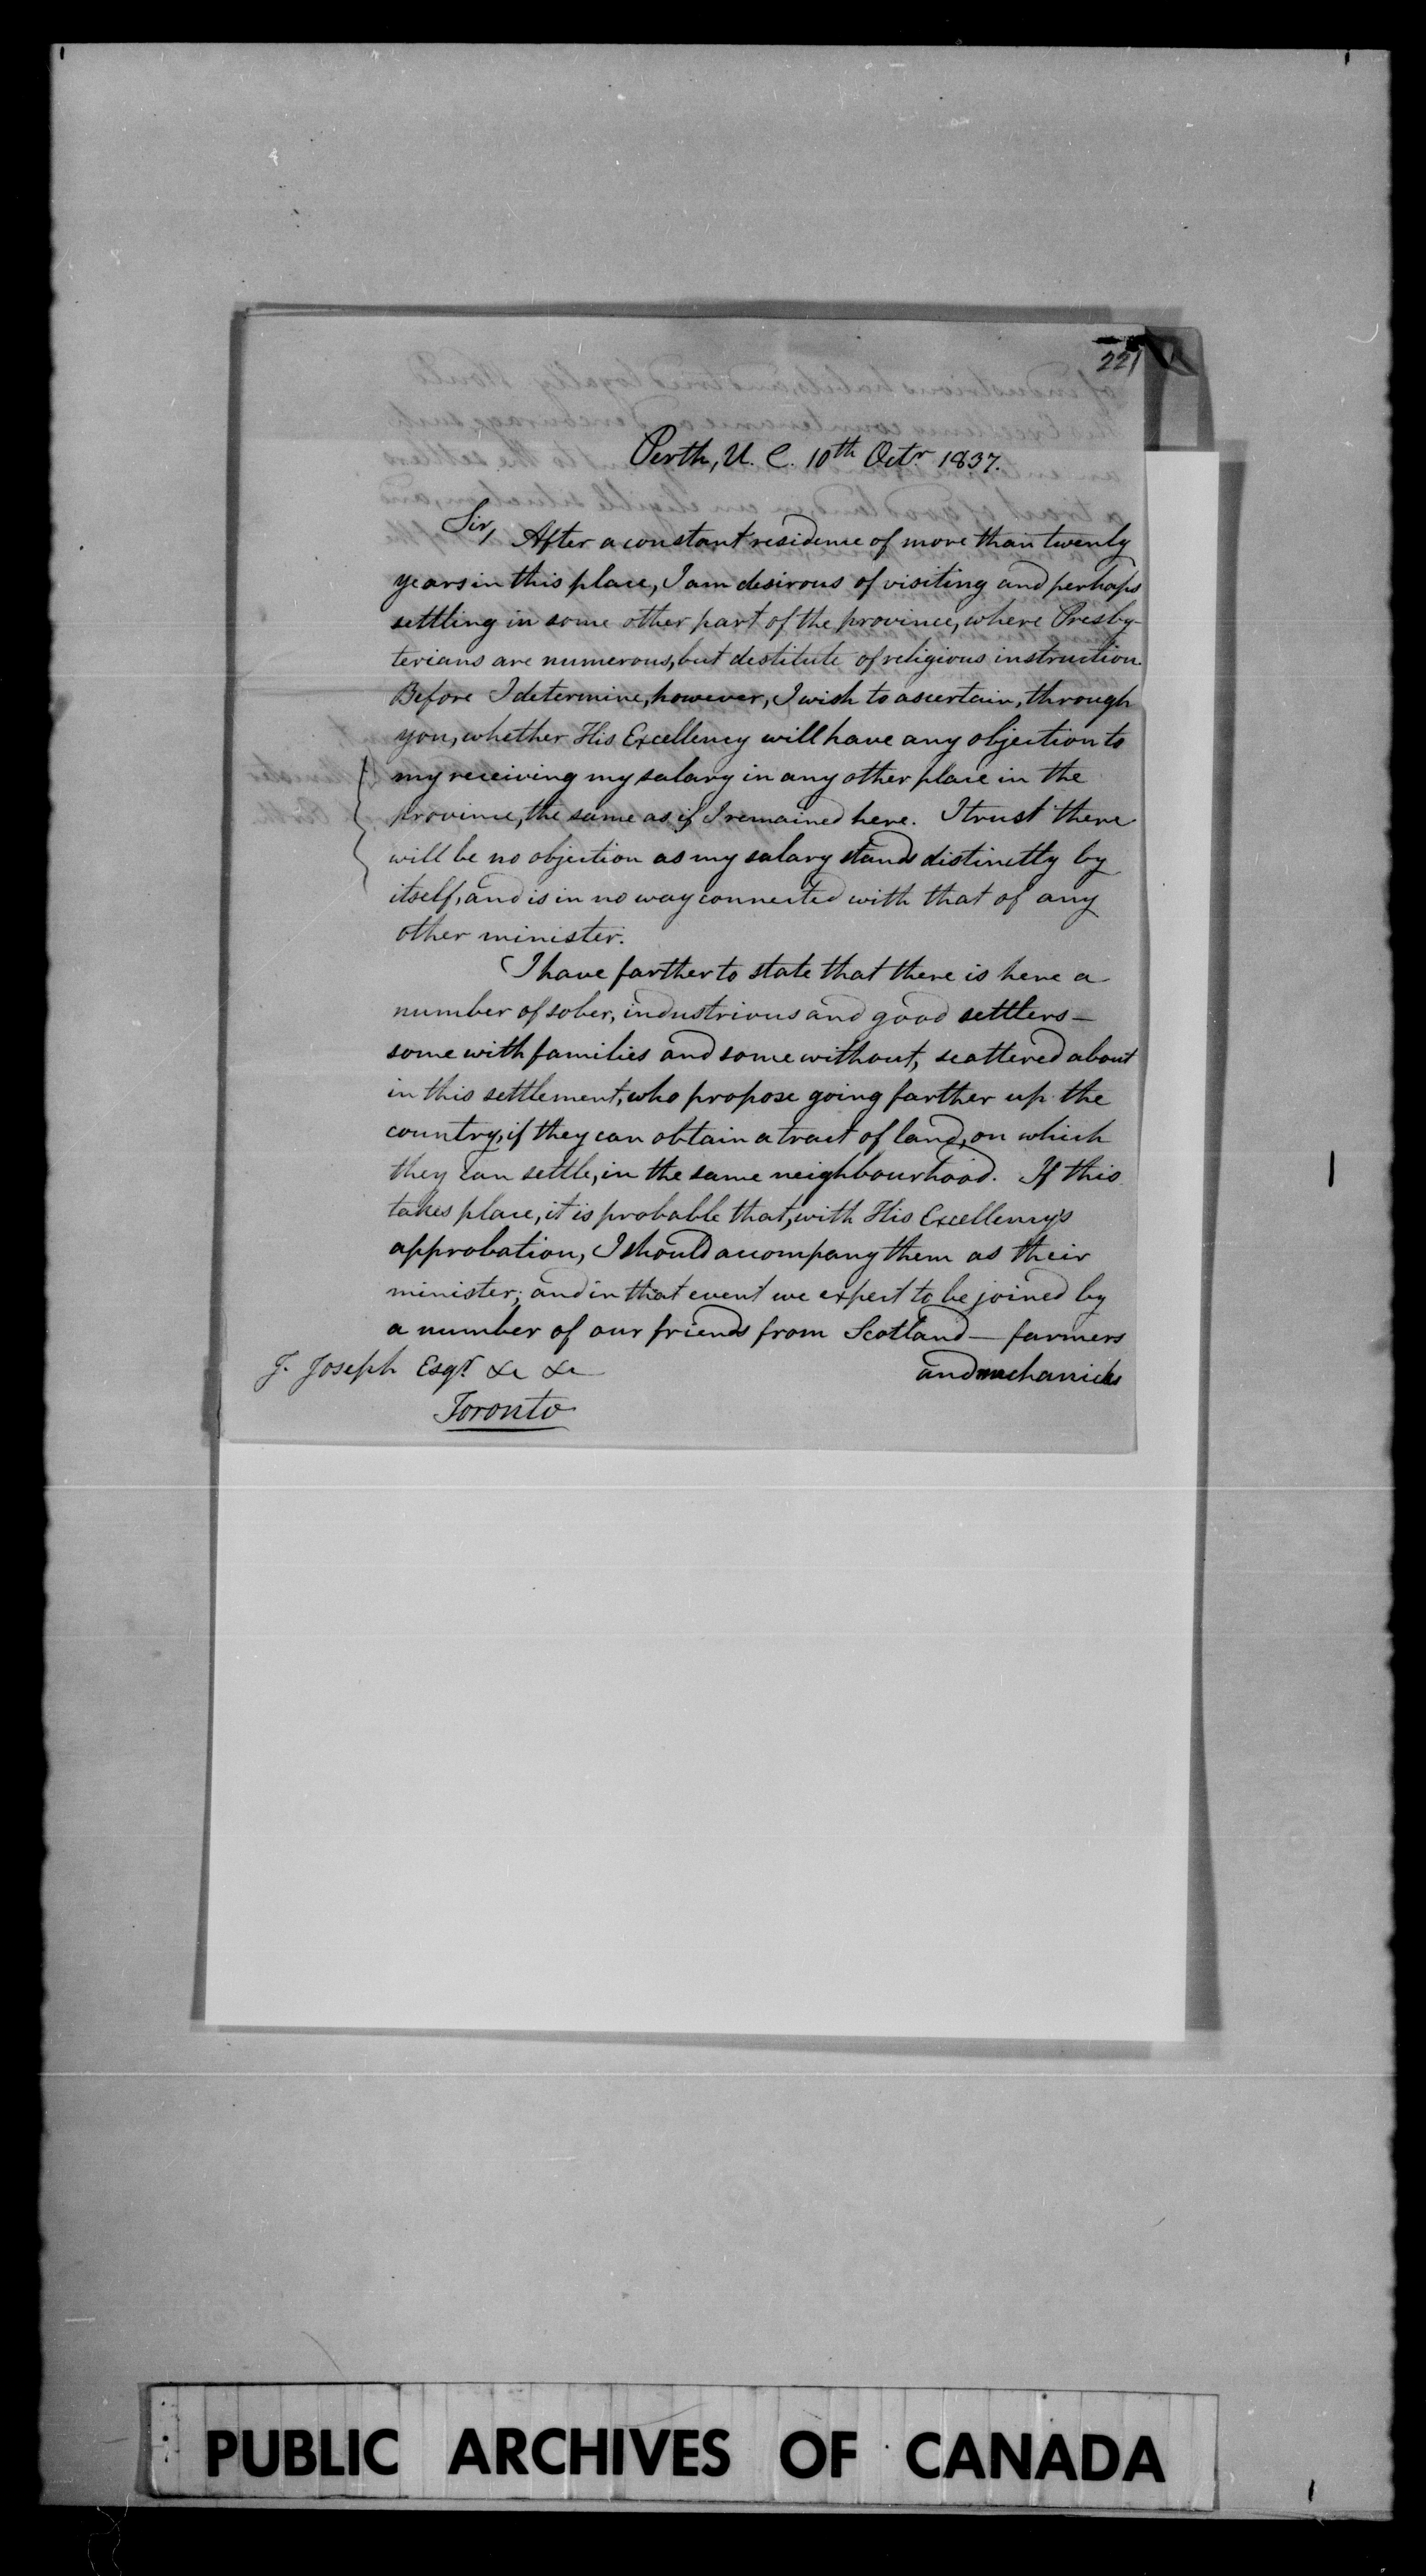 221
Perth, U. C. 10th Octr. 1837.
Sir, After a constant residence of more than twenty
years in this place, I am desirous of visiting and perhaps
settling in some other part of the province, where Presby-
terians are numerous, but destitute of religious instruction.
Before I determine, however, I wish to ascertain, through
you, whether His Excellency will have any objection to
my receiving my salary in any other place in the
province, the same as if I remained here. I trust there
will be no objection as my salary stands distinctly by
itself, and is in no way connected with that of any
other minister.
I have farther to state that there is here a
number of sober, industrious and good settlers—
some with families and some without, scattered about
in this settlement, who propose going farther up the
country, if they can obtain a tract of land, on which
they can settle, in the same neighbourhood. If this
takes place, it is probable that, with His Excellency's
approbation, I should accompany them as their
minister; and in that event we expect to be joined by
a number of our friends from Scotland— farmers
and mechanicks
J. Joseph Esqr. &c &c
Toronto
PUBLIC ARCHIVES OF CANADA